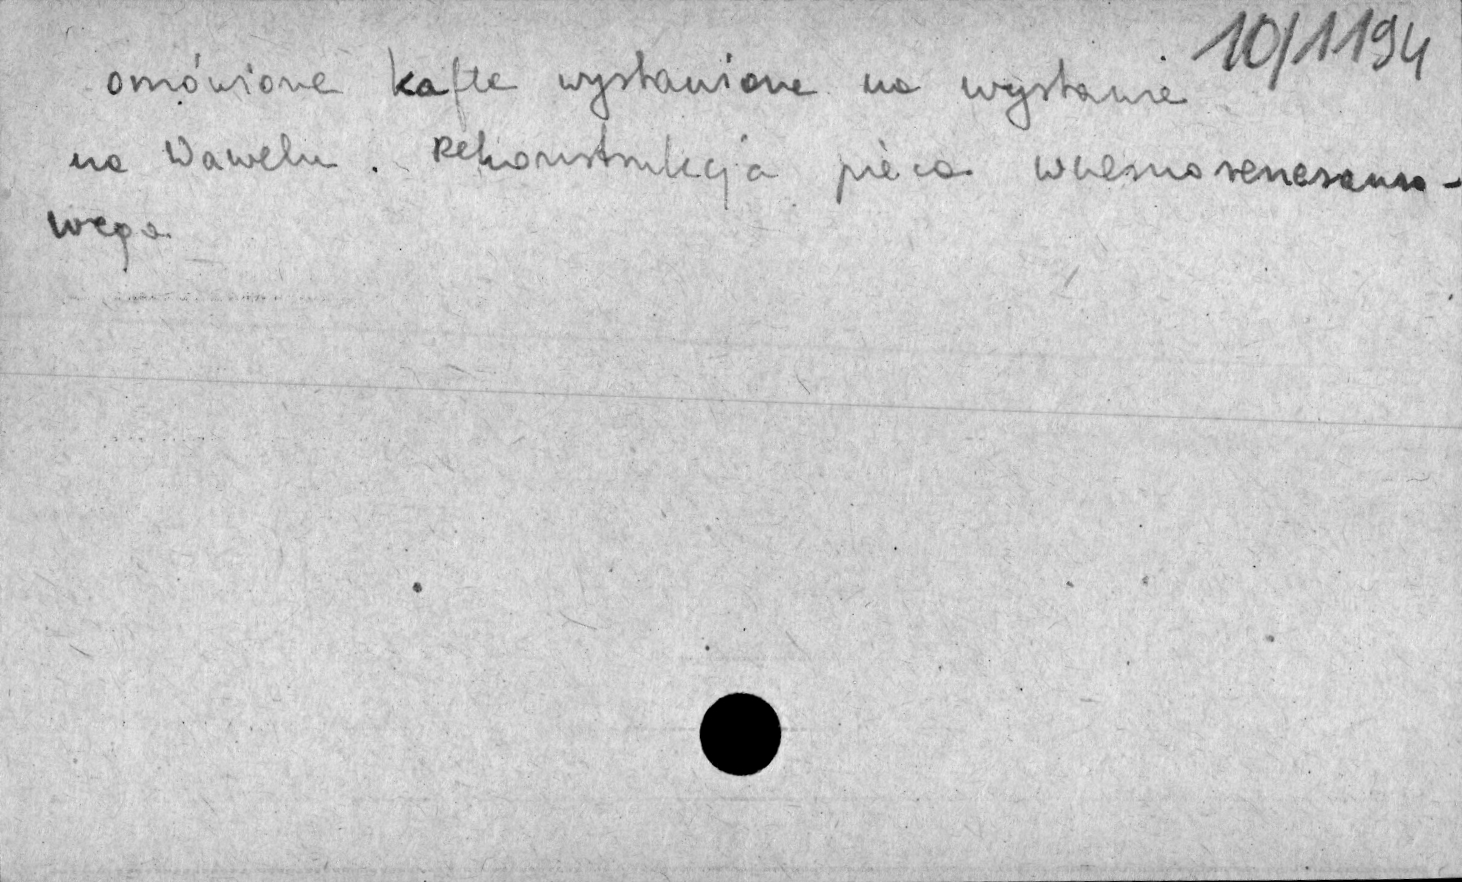 10/1194
omówione kafle wystawione na wystawie
na Wawelu. Rekonstrukcja pieca wczesnorenesanso-
wego